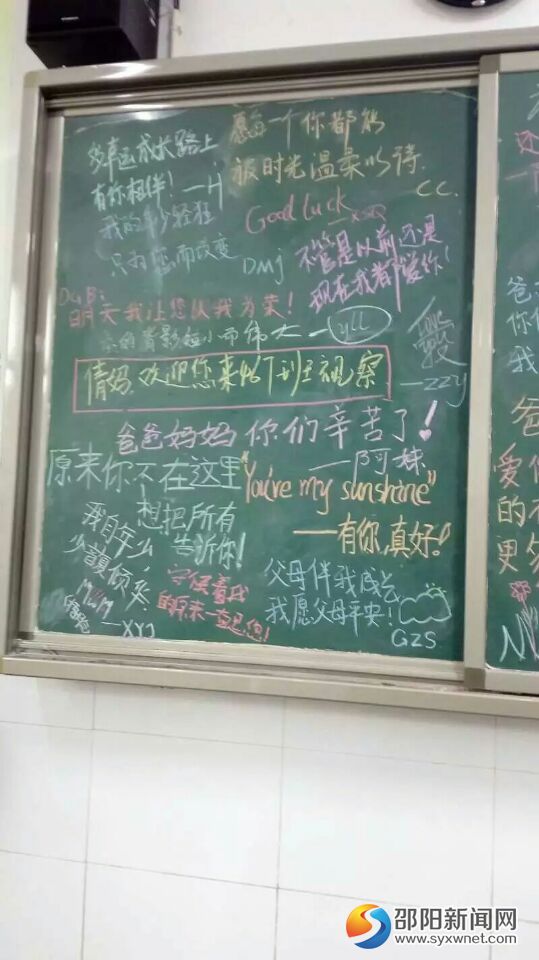 多幸运成长路上
有你相伴！—H
我的年少轻狂
只为您而改变
愿每一个你都能
被时光温柔以待.
CC.
Good luck
—XSQ
DMJ
不管是以前还是
现在我都爱你！
DaBi:
明天我让您以我为荣！
您的背影短小而伟大—yll
Love
—ZZY
倩妈 欢迎您来467班视察
爸爸妈妈 你们辛苦了！
—阿妹
原来你不在这里
想把所有
告诉你！
"You're my sunshine"
—有你,真好！
我自年少,
—XYJ
守候着我
父母伴我成长
我愿父母平安！
GZS
还
爸
你
我
爸
爱
的
更
邵阳新闻网
www.syxwnet.com